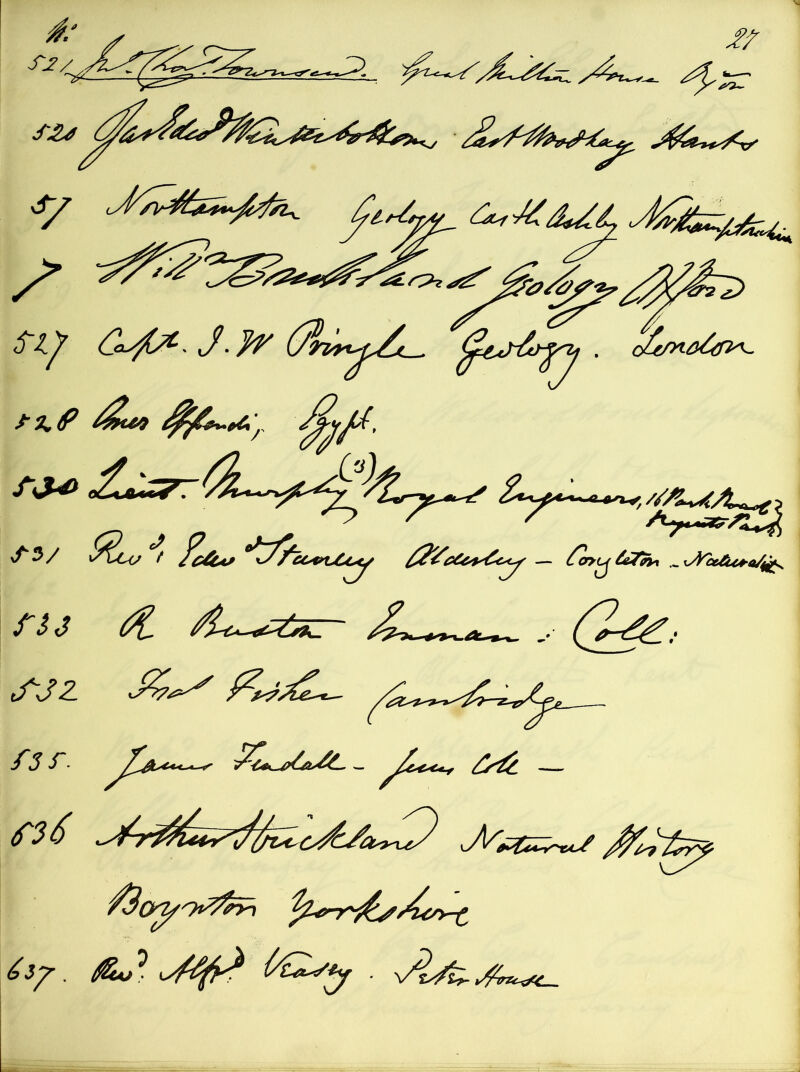 No. 27
521 Jno. Chas. Townsend. Great Milton House Oxon
520 Jas Edwd Winterbottom East Woodhay Hants
57 Northampton Geology Castle Ashby Northamptonshire
7 Willm Buckland Geology Oxford
527 Capt. J. W Pringle Geology. London
528 Omer Effendi, Egypt.
530 Lieut. Murphy (3) Royal Engineers, 16 Park Road
Regents Park
531 Revd. Edwd Stanley Alderley - Congleton - Naturalist
533 R Buston Emman: Coll:
532 Fras Fisher Cambridge
535. James Tendall - Jesus Coll —
636 Arthur Strickland Natural History
Boynton Yorkshire
637. Revd. Alfrd Veasey. Peter House